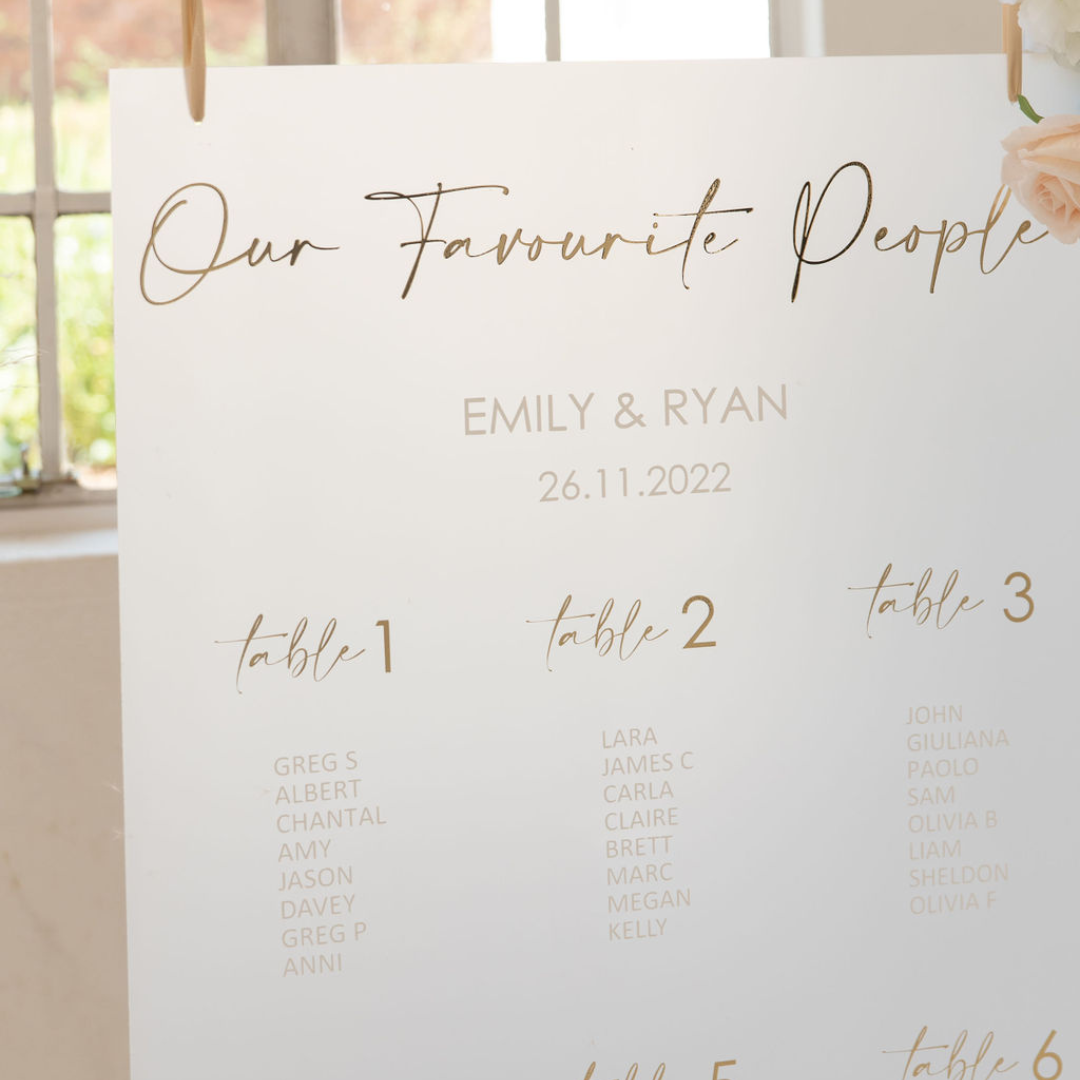 Our Favourite People
EMILY & RYAN
26.11.2022
table 1
GREG S
ALBERT
CHANTAL
AMY
JASON
DAVEY
GREG P
ANNI
table 2
LARA
JAMES C
CARLA
CLAIRE
BRETT
MARC
MEGAN
KELLY
table 3
JOHN
GIULIANA
PAOLO
SAM
OLIVIA B
LIAM
SHELDON
OLIVIA F
table 5
table 6